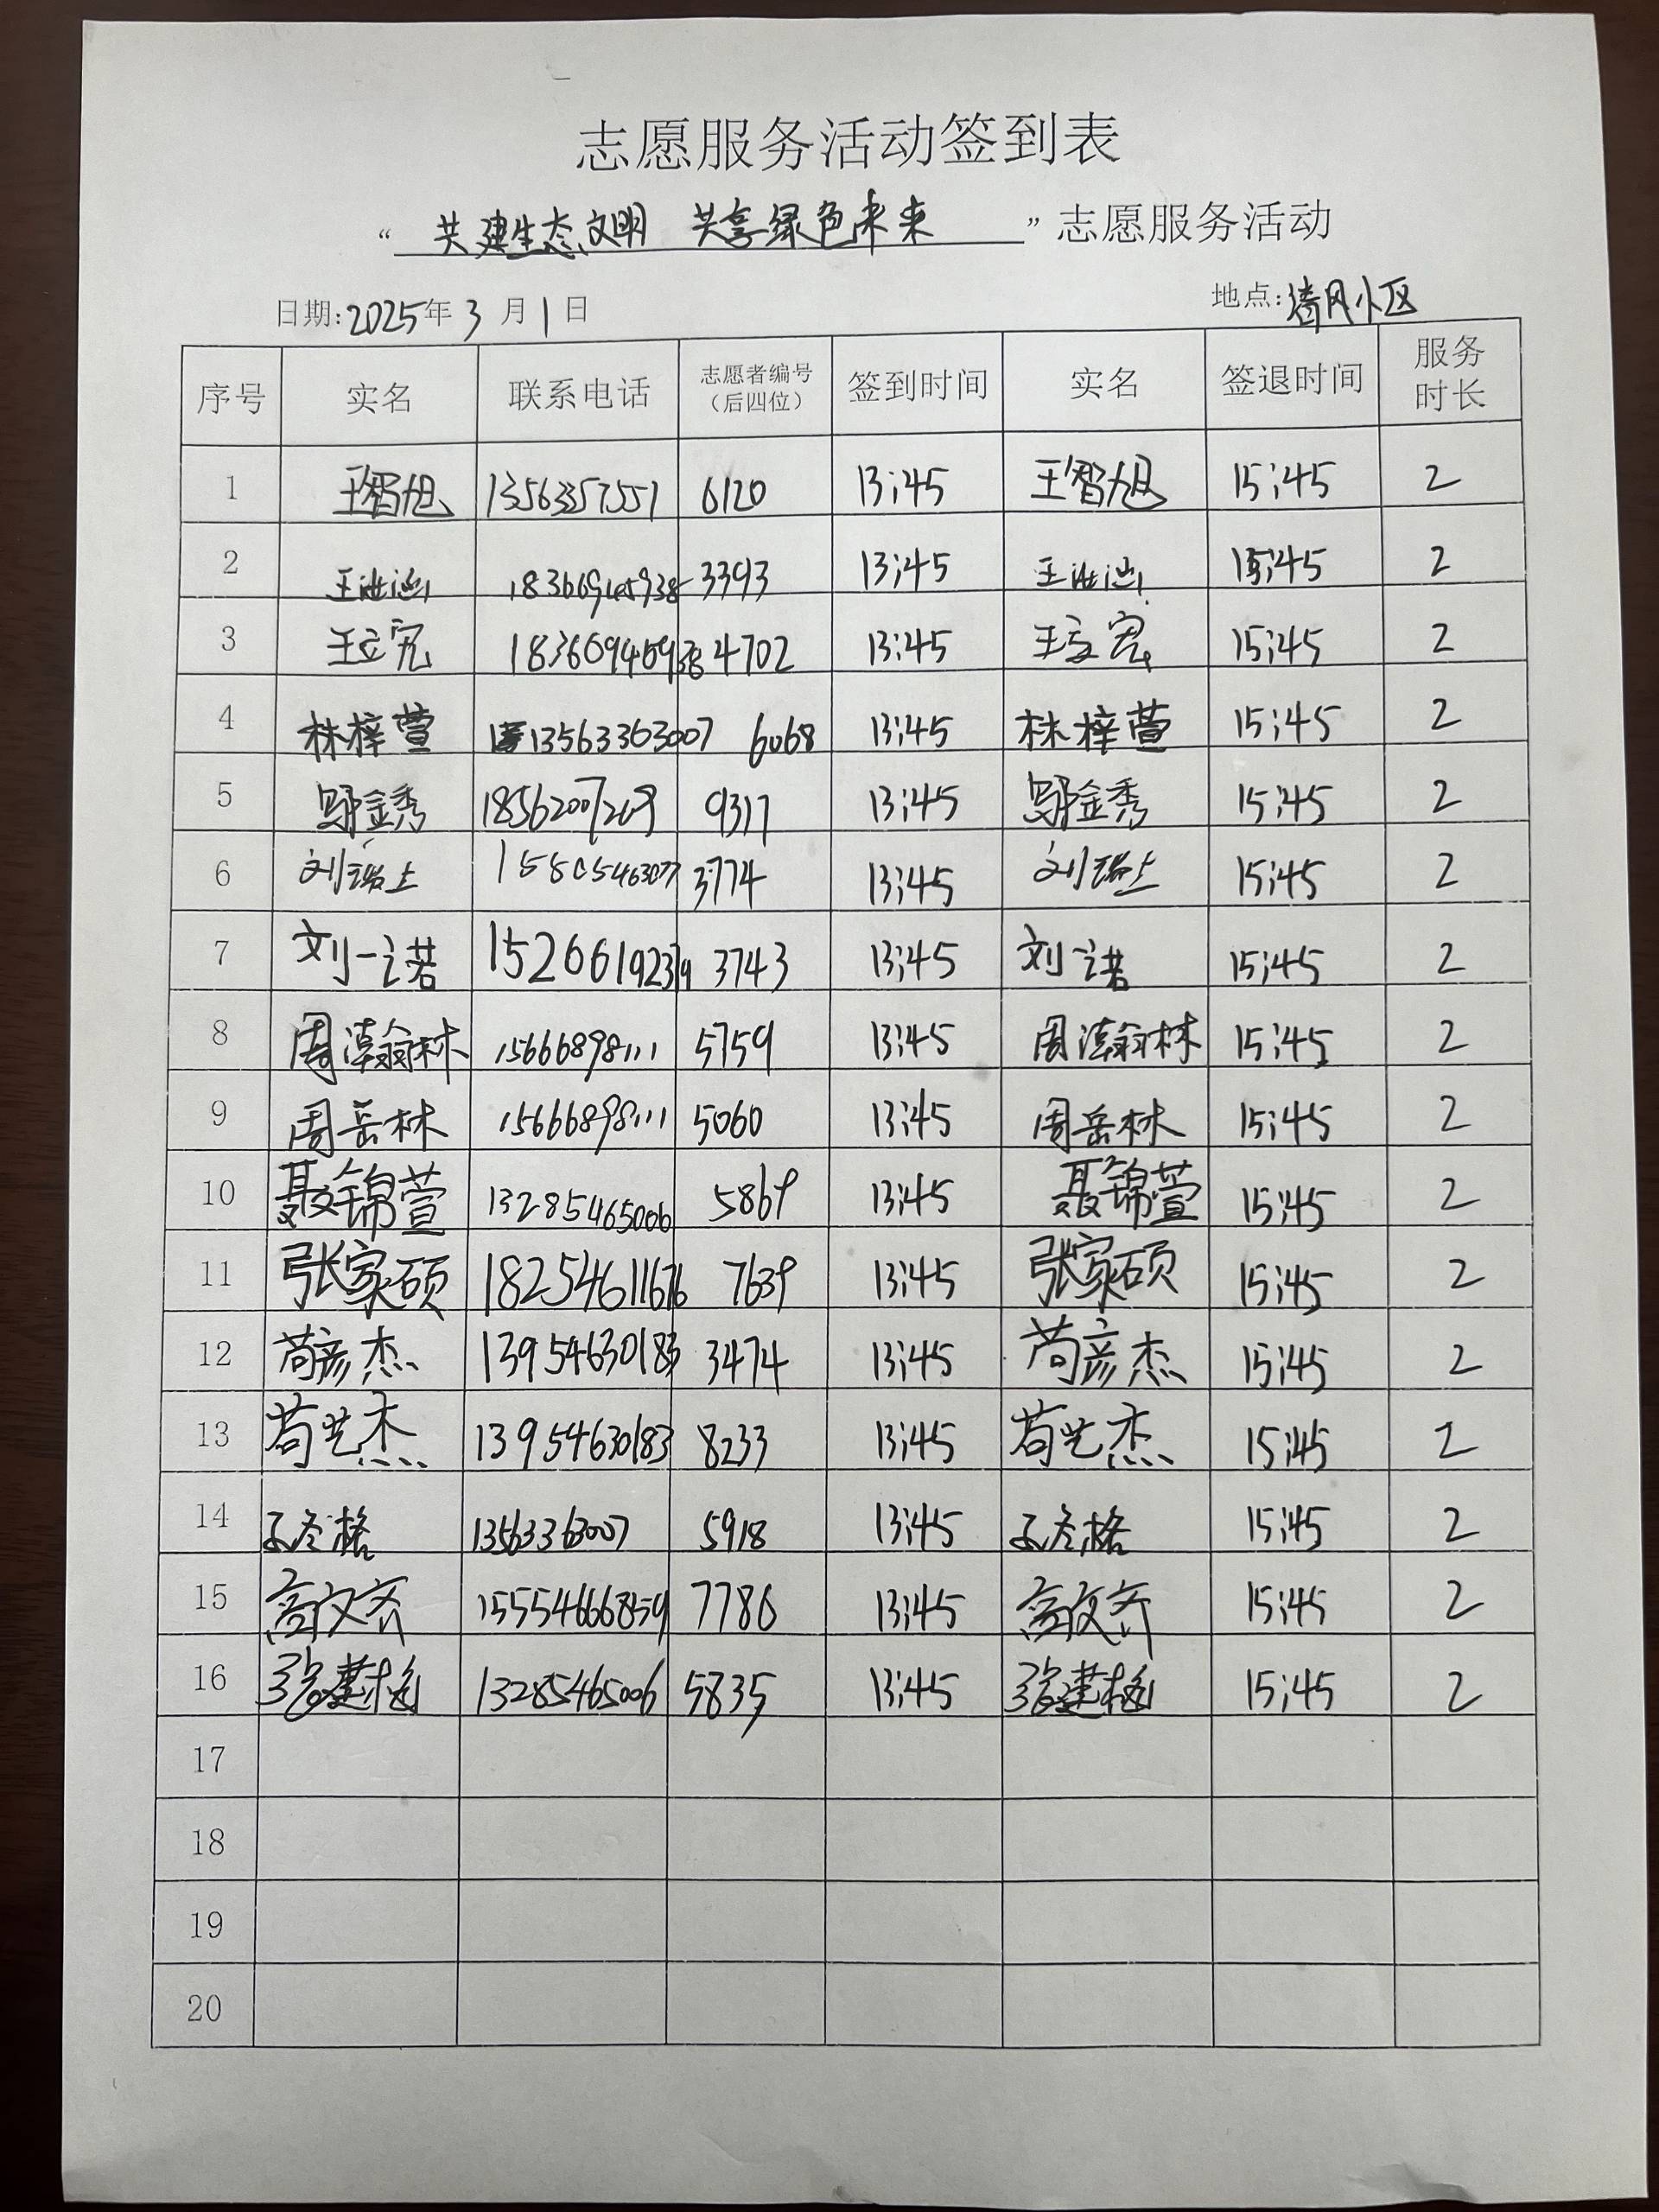 志愿服务活动签到表
“共建生态文明 共享绿色未来”志愿服务活动
日期:2025年3月1日 地点:清风小区
序号 实名 联系电话 志愿者编号（后四位） 签到时间 实名 签退时间 服务时长
1 王智旭 13563357551 6120 13:45 王智旭 15:45 2
2 3393 13:45 15:45 2
3 王立宪 4702 13:45 15:45 2
4 林梓萱 13563363007 6068 13:45 林梓萱 15:45 2
5 鄢金秀 18562007269 9317 13:45 鄢金秀 15:45 2
6 15805463077 3774 13:45 15:45 2
7 刘一诺 3743 13:45 刘一诺 15:45 2
8 周瀚翰林 15666898111 5759 13:45 周瀚翰林 15:45 2
9 周岳林 15666898111 5060 13:45 周岳林 15:45 2
10 聂锦萱 13285465006 5869 13:45 聂锦萱 15:45 2
11 张家硕 18254611676 7639 13:45 张家硕 15:45 2
12 苟彦杰 13954630183 3474 13:45 苟彦杰 15:45 2
13 苟艺杰 13954630183 8233 13:45 苟艺杰 15:45 2
14 13563363007 5918 13:45 15:45 2
15 高文齐 15554666859 7786 13:45 高文齐 15:45 2
16 13285465006 5835 13:45 15:45 2
17
18
19
20